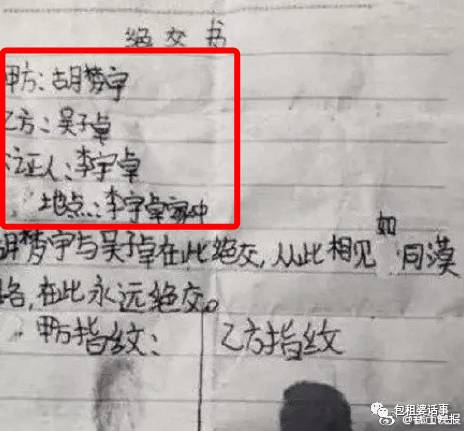 绝交书
甲方：胡梦宇
乙方：吴子卓
公证人：李宇卓
地点：李宇卓家中
胡梦宇与吴子卓在此绝交，从此相见如同漠
路，在此永远绝交。
甲方指纹： 乙方指纹
包租婆话事
晚报